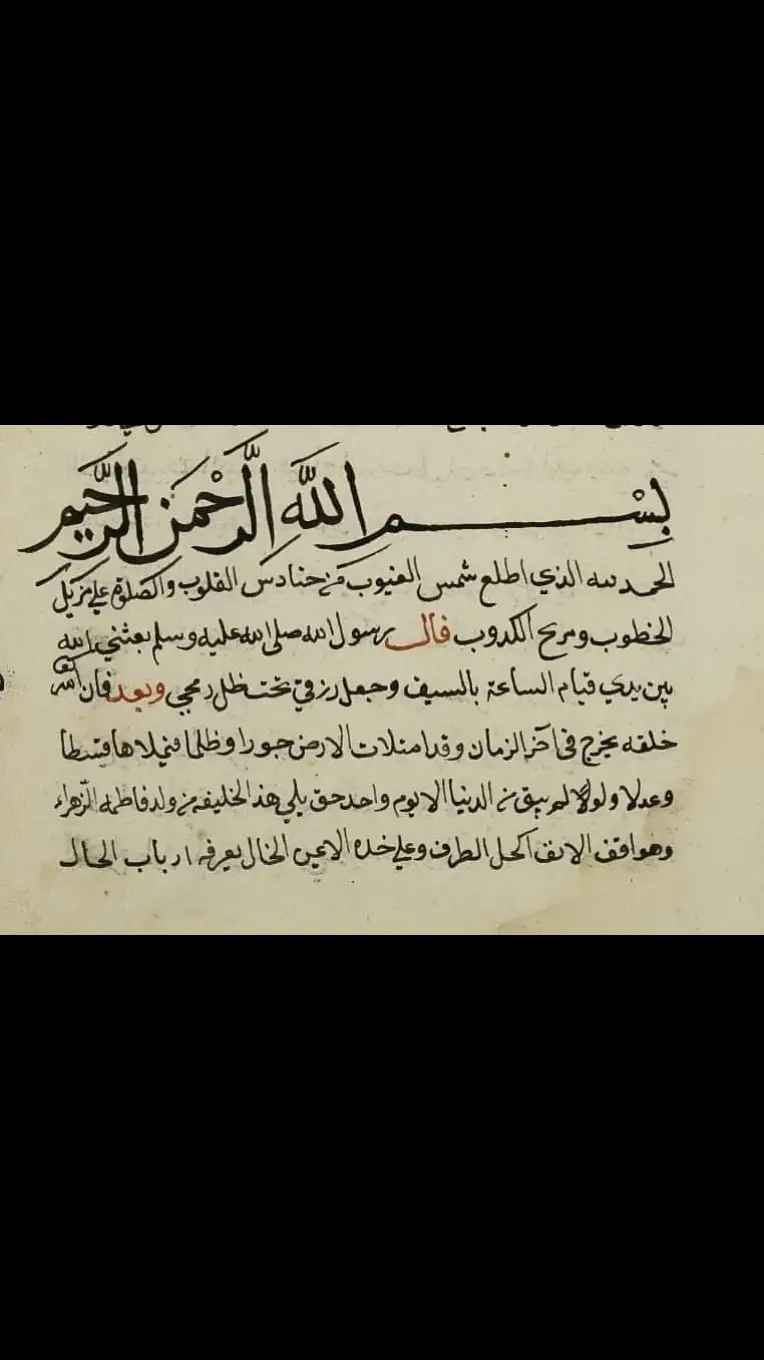 بِسْمِ اللَّهِ الرَّحْمَنِ الرَّحِيمِ
الحمد لله الذي اطلع شمس الغيوب من حنادس القلوب والصلوة على مزيل
الخطوب ومريح الكدوب قال رسول الله صلى الله عليه وسلم بعثني الله
بين يدي قيام الساعة بالسيف وجعل رزقي تحت ظل رمحي وبعد فان لله تعالى
خلقه يخرج في آخر الزمان وقد امتلات الارض جورا وظلما فيملاها قسطا
وعدلا ولو لا لم يبق من الدنيا الا يوم واحد حتى يلي هذ الخليفه من ولد فاطمه الزهراء
وهو اقف الانف اكحل الطرف وعلى خده الايمن الخال يعرفه ارباب الحال